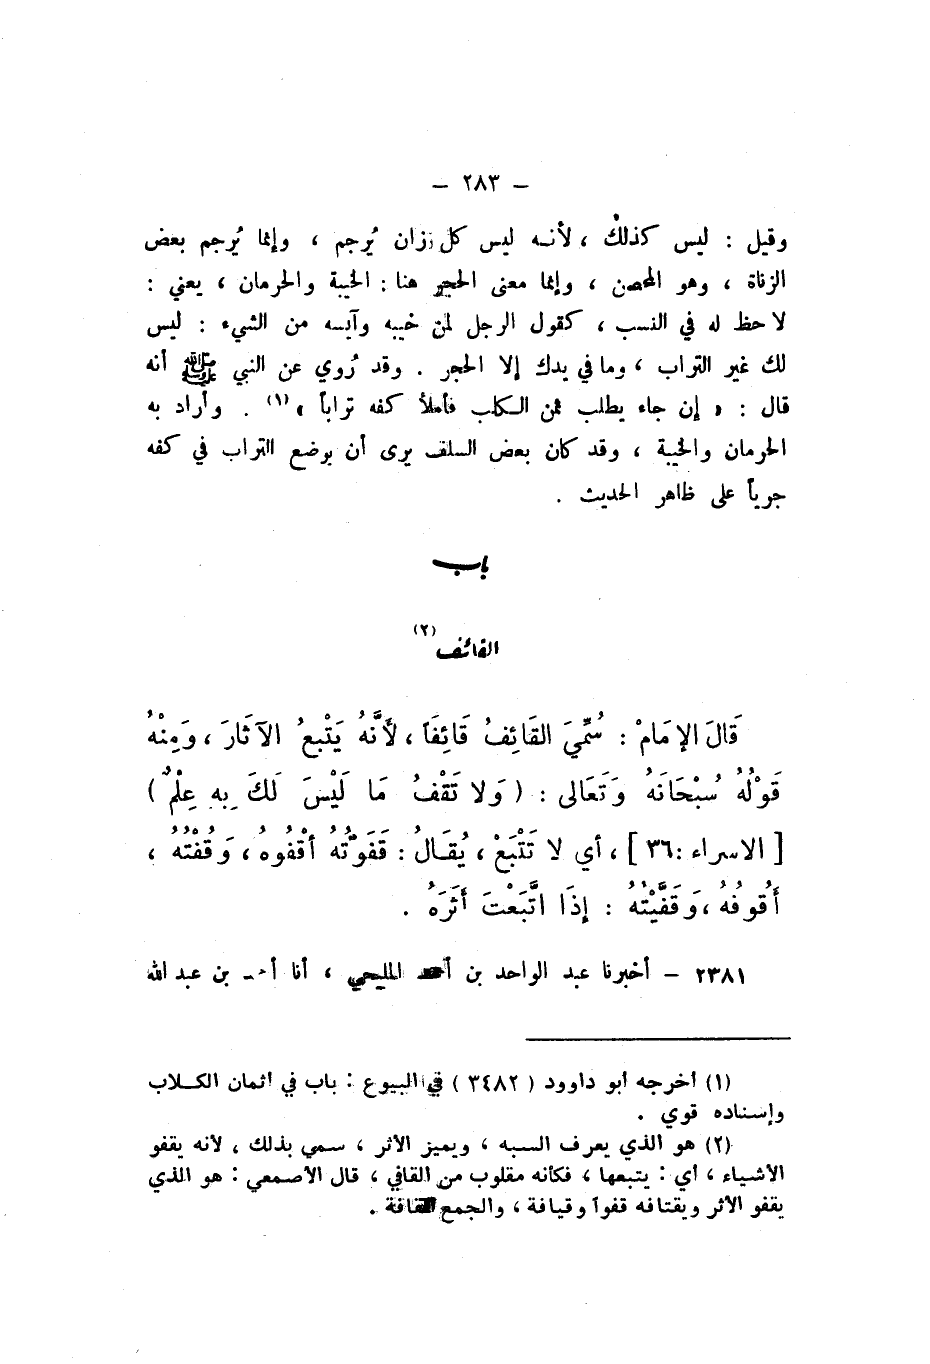 – ٢٨٣ –
وقيل : ليس كذلك ، لأنه ليس كل زان يُرجم ، وإنما يُرجم بعض
الزناة ، وهو المحصن ، وإنما معنى الحجر هنا : الخيبة والحرمان ، يعني :
لا حظ له في النسب ، كقول الرجل لمن خيبه وآيسه من الشيء : ليس
لك غير التراب ، وما في يدك إلا الحجر . وقد رُوي عن النبي ﷺ أنه
قال : « إن جاء يطلب ثمن الكلب فأملأ كفه تراباً » (١) . وأراد به
الحرمان والخيبة ، وقد كان بعض السلف يرى أن يوضع التراب في كفه
جرياً على ظاهر الحديث .
باب
القائف (٢)
قَالَ الإمَامُ : سُمِّيَ القَائِفُ قَائِفَاً ، لأَنَّهُ يَتْبعُ الآثَارَ ، وَمِنْهُ
قَوْلُهُ سُبْحَانَهُ وَتَعَالى : ( وَلا تَقْفُ مَا لَيْسَ لَكَ بِهِ عِلْمٌ )
[ الاسراء : ٣٦ ] ، أي لا تَتْبَعْ ، يُقَالُ : قَفَوْتُهُ أقْفُوه ، وَقُفْتُهُ ،
أَقُوفُهُ ، وَقَفَّيْتُهُ : إذَا اتَّبَعْتَ أثَرَهُ .
٢٣٨١ – أخبرنا عبد الواحد بن أحمد المليحي ، أنا أحمد بن عبد الله
(١) أخرجه أبو داوود ( ٣٤٨٢ ) في البيوع : باب في اثمان الكلاب
وإسناده قوي .
(٢) هو الذي يعرف الشبه ، ويميز الأثر ، سمي بذلك ، لأنه يقفو
الأشياء ، أي : يتبعها ، فكأنه مقلوب من القافي ، قال الأصمعي : هو الذي
يقفو الأثر ويقتافه قفواً وقيافة ، والجمع القافة .